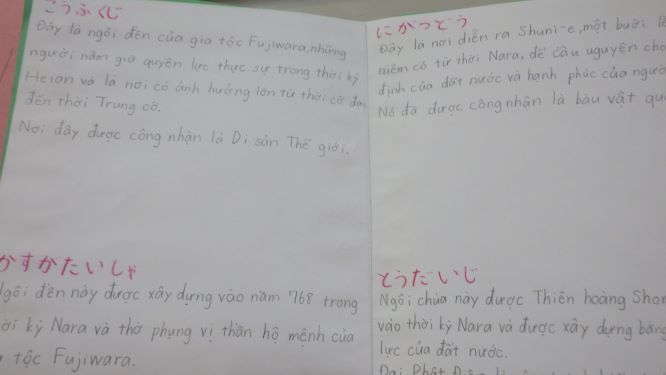 こうふくじ
Đây là ngôi đền của gia tộc Fujiwara, những
người nắm giữ quyền lực thực sự trong thời kỳ
Heian và là nơi có ảnh hưởng lớn từ thời cổ đại
đến thời Trung cổ.
Nơi đây được công nhận là Di sản Thế giới.
かすがたいしゃ
Ngôi đền này được xây dựng vào năm 768 trong
kỳ Nara và thờ phụng vị thần hộ mệnh của
tộc Fujiwara.
にがつどう
Đây là nơi diễn ra Shuni-e, một buổi
niệm có từ thời Nara, để cầu nguyện cho
định của đất nước và hạnh phúc của người
Nó đã được công nhận là bàu vật
とうだいじ
Ngôi chùa này được Thiên hoàng
vào thời kỳ Nara và được xây dựng bằng
lực của đất nước.
Đại Phật